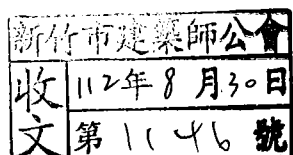 新竹市建築師公會
收文
112年8月30日
第1146號